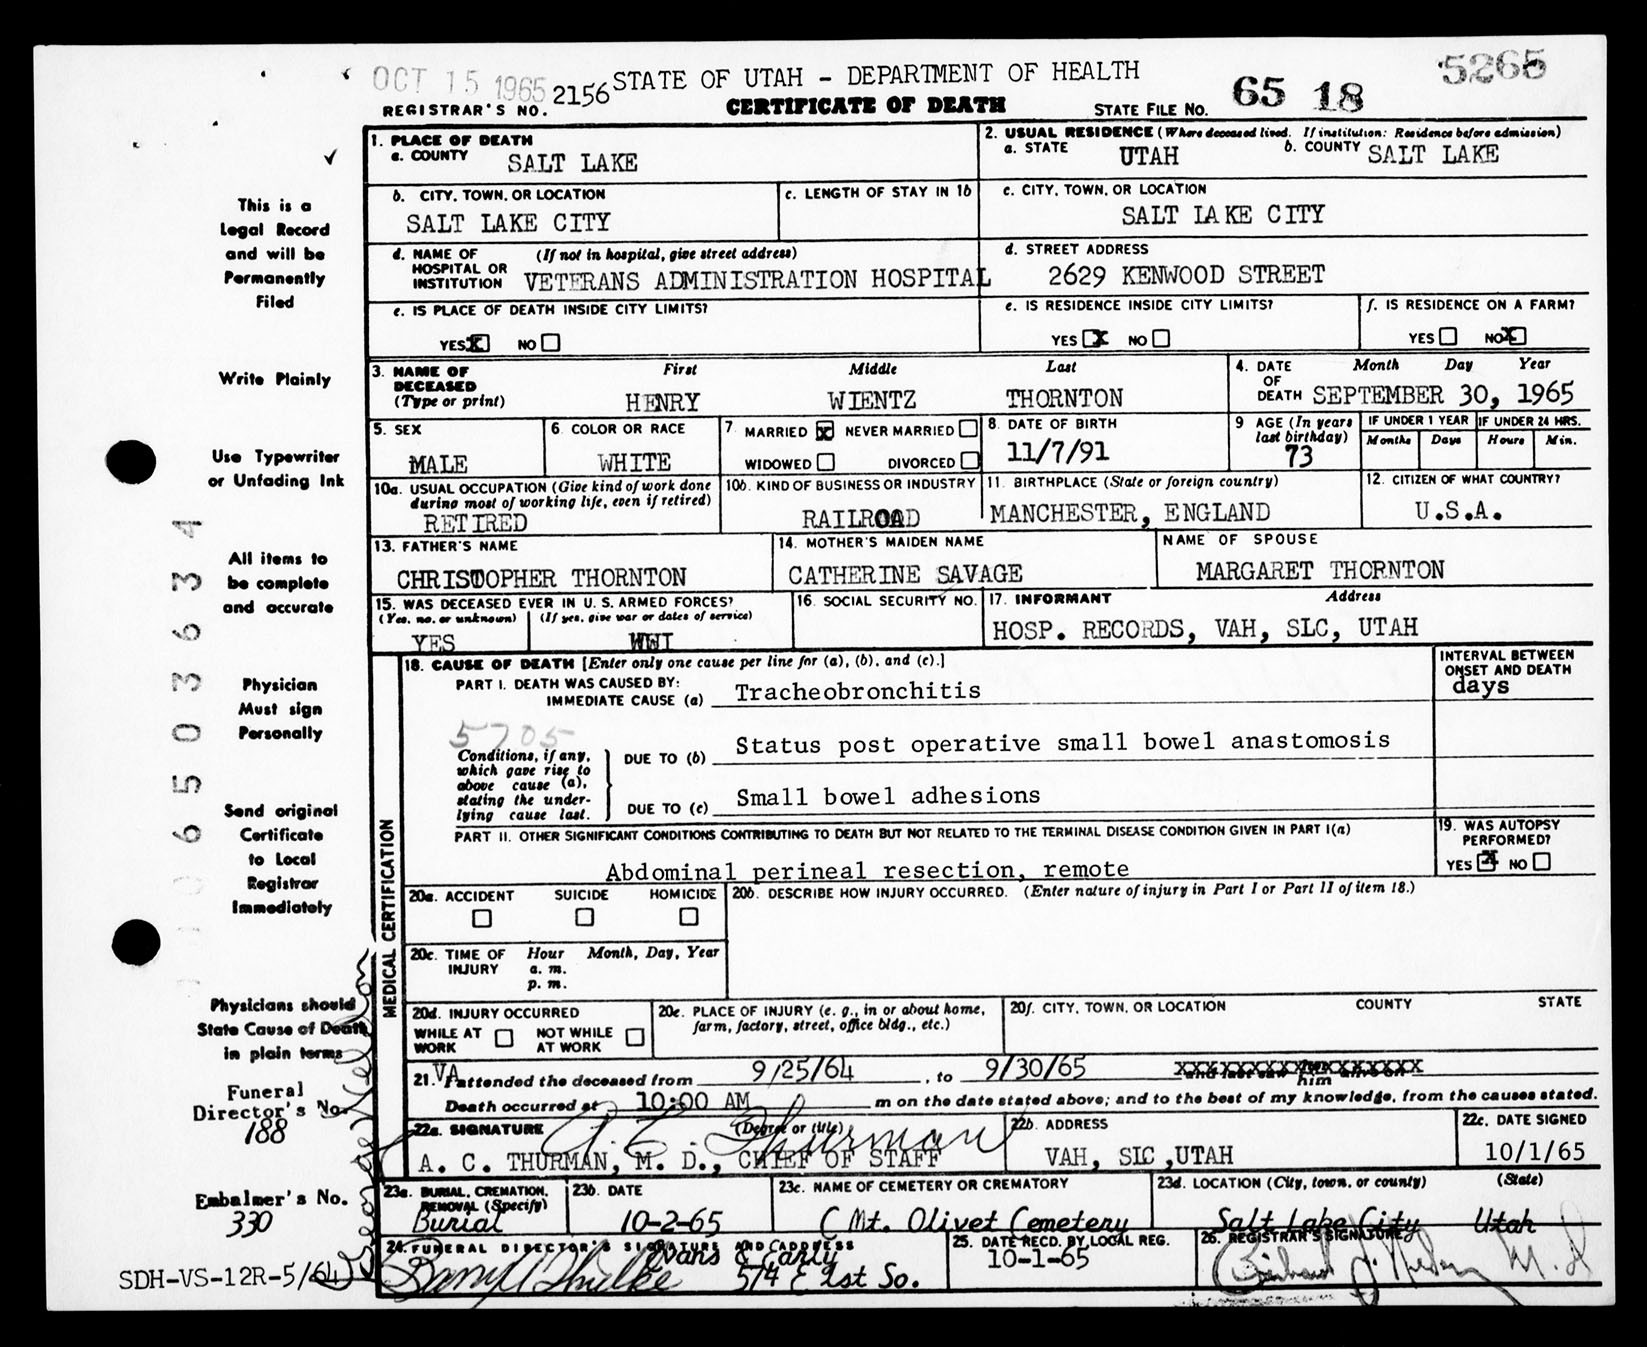 OCT 15 1965
5265
STATE OF UTAH - DEPARTMENT OF HEALTH
REGISTRAR'S NO. 2156 CERTIFICATE OF DEATH STATE FILE NO. 65 18
1. PLACE OF DEATH
a. COUNTY SALT LAKE
2. USUAL RESIDENCE (Where deceased lived. If institution: Residence before admission)
a. STATE UTAH b. COUNTY SALT LAKE
b. CITY, TOWN, OR LOCATION
SALT LAKE CITY
c. LENGTH OF STAY IN 1b
c. CITY, TOWN, OR LOCATION
SALT LAKE CITY
d. NAME OF HOSPITAL OR INSTITUTION (If not in hospital, give street address)
VETERANS ADMINISTRATION HOSPITAL
d. STREET ADDRESS
2629 KENWOOD STREET
e. IS PLACE OF DEATH INSIDE CITY LIMITS?
YES X NO
e. IS RESIDENCE INSIDE CITY LIMITS?
YES X NO
f. IS RESIDENCE ON A FARM?
YES NO X
3. NAME OF DECEASED (Type or print)
First Middle Last
HENRY WIENTZ THORNTON
4. DATE OF DEATH Month Day Year
SEPTEMBER 30, 1965
5. SEX
MALE
6. COLOR OR RACE
WHITE
7. MARRIED X NEVER MARRIED
WIDOWED DIVORCED
8. DATE OF BIRTH
11/7/91
9 AGE (In years last birthday)
73
IF UNDER 1 YEAR
Months Days
IF UNDER 24 HRS.
Hours Min.
10a. USUAL OCCUPATION (Give kind of work done during most of working life, even if retired)
RETIRED
10b. KIND OF BUSINESS OR INDUSTRY
RAILROAD
11. BIRTHPLACE (State or foreign country)
MANCHESTER, ENGLAND
12. CITIZEN OF WHAT COUNTRY?
U.S.A.
13. FATHER'S NAME
CHRISTOPHER THORNTON
14. MOTHER'S MAIDEN NAME
CATHERINE SAVAGE
NAME OF SPOUSE
MARGARET THORNTON
15. WAS DECEASED EVER IN U. S. ARMED FORCES?
(Yes, no, or unknown) (If yes, give war or dates of service)
YES WWI
16. SOCIAL SECURITY NO.
17. INFORMANT Address
HOSP. RECORDS, VAH, SLC, UTAH
MEDICAL CERTIFICATION
18. CAUSE OF DEATH [Enter only one cause per line for (a), (b), and (c).]
INTERVAL BETWEEN ONSET AND DEATH
PART I. DEATH WAS CAUSED BY:
IMMEDIATE CAUSE (a) Tracheobronchitis days
5705
Conditions, if any, which gave rise to above cause (a), stating the underlying cause last.
DUE TO (b) Status post operative small bowel anastomosis
DUE TO (c) Small bowel adhesions
PART II. OTHER SIGNIFICANT CONDITIONS CONTRIBUTING TO DEATH BUT NOT RELATED TO THE TERMINAL DISEASE CONDITION GIVEN IN PART I(a)
Abdominal perineal resection, remote
19. WAS AUTOPSY PERFORMED?
YES X NO
20a. ACCIDENT SUICIDE HOMICIDE
20b. DESCRIBE HOW INJURY OCCURRED. (Enter nature of injury in Part I or Part II of item 18.)
20c. TIME OF INJURY Hour Month, Day, Year
a. m.
p. m.
20d. INJURY OCCURRED
WHILE AT WORK NOT WHILE AT WORK
20e. PLACE OF INJURY (e. g., in or about home, farm, factory, street, office bldg., etc.)
20f. CITY, TOWN, OR LOCATION COUNTY STATE
21. VA attended the deceased from 9/25/64, to 9/30/65 him
Death occurred at 10:00 AM m on the date stated above; and to the best of my knowledge, from the causes stated.
22a. SIGNATURE (Degree or title)
A. C. Thurman
A. C. THURMAN, M. D., CHIEF OF STAFF
22b. ADDRESS
VAH, SLC ,UTAH
22c. DATE SIGNED
10/1/65
23a. BURIAL, CREMATION, REMOVAL (Specify)
Burial
23b. DATE
10-2-65
23c. NAME OF CEMETERY OR CREMATORY
Mt. Olivet Cemetery
23d. LOCATION (City, town, or county) (State)
Salt Lake City Utah
24. FUNERAL DIRECTOR'S SIGNATURE AND ADDRESS
Evans & Early
574 E 1st So.
25. DATE RECD. BY LOCAL REG.
10-1-65
26. REGISTRAR'S SIGNATURE
M.D
This is a
Legal Record
and will be
Permanently
Filed
Write Plainly
Use Typewriter
or Unfading Ink
All items to
be complete
and accurate
Physician
Must sign
Personally
Send original
Certificate
to Local
Registrar
Immediately
Physicians should
State Cause of Death
in plain terms
Funeral
Director's No.
188
Embalmer's No.
330
SDH-VS-12R-5/64